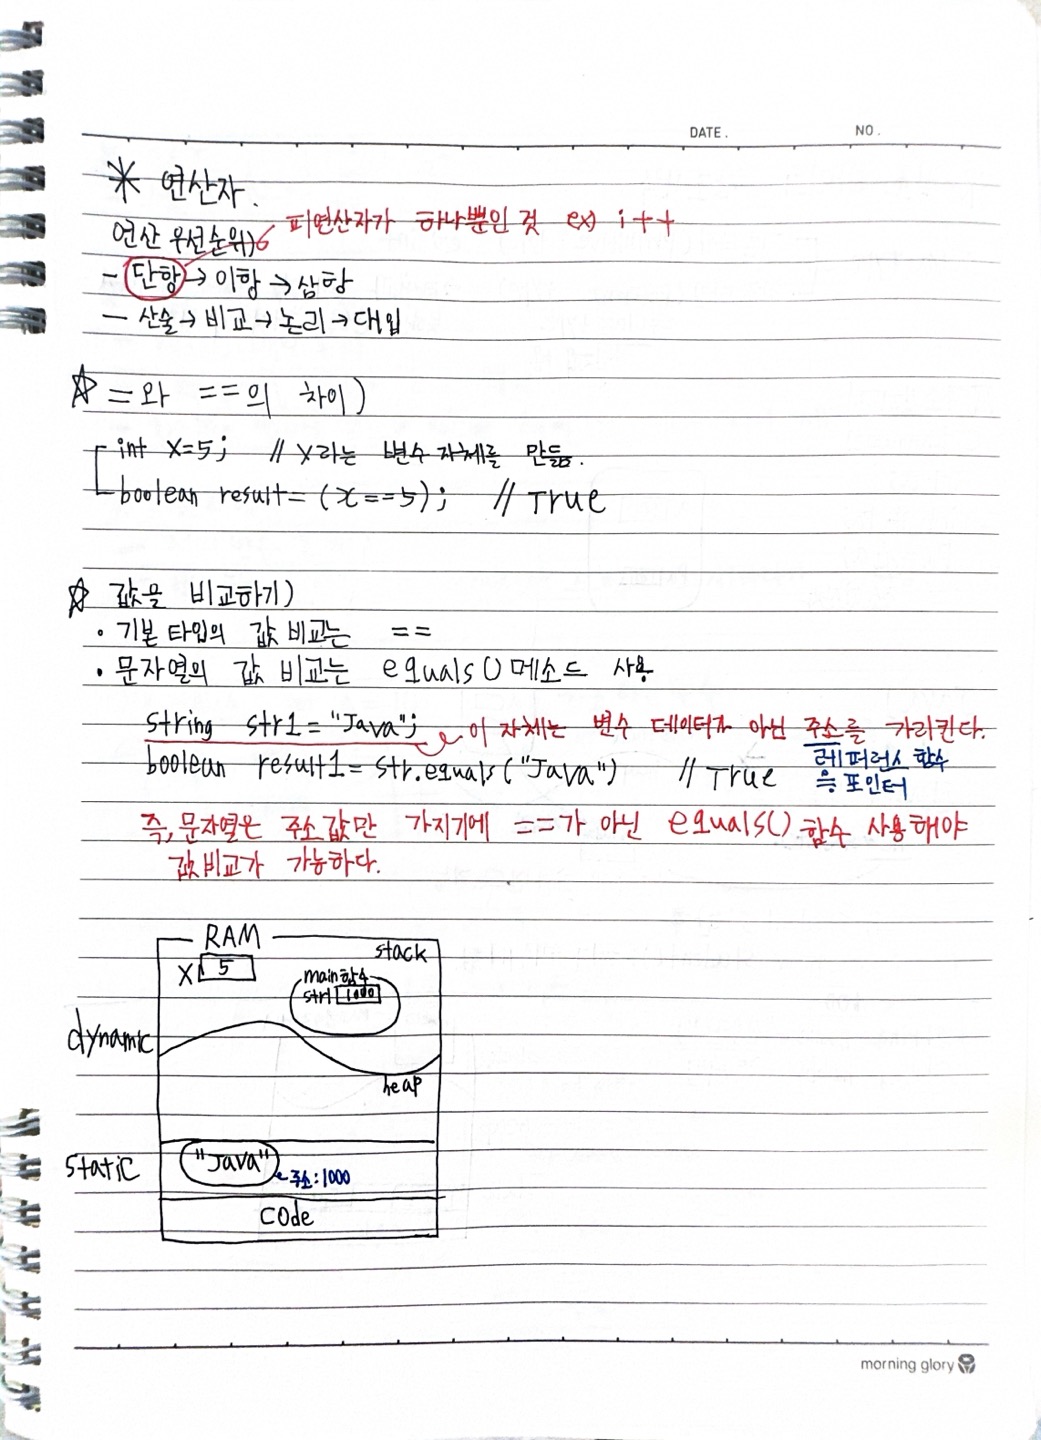 DATE.
NO.
* 연산자.
연산 우선순위)
피연산자가 하나뿐인 것 ex) i++
- 단항→이항→삼항
- 산술→비교→논리→대입
☆ =와 ==의 차이)
int X=5; // X라는 변수 자체를 만듦.
boolean result= (x==5); // True
☆ 값을 비교하기)
• 기본타입의 값 비교는 ==
• 문자열의 값 비교는 equals()메소드 사용
string str1="Java"; 이 자체는 변수 데이터가 아닌 주소를 가리킨다.
boolean result1= str.equals("Java") // True
레퍼런스 함수
≒ 포인터
즉, 문자열은 주소값만 가지기에 ==가 아닌 equals() 함수 사용해야
값비교가 가능하다.
RAM
stack
X 5
main함수
str1 1000
dynamic
heap
static
"Java"
주소:1000
code
morning glory